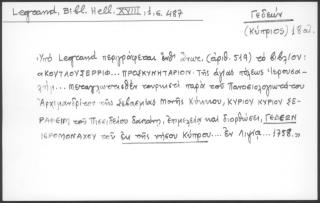 Legrand, Bibl. Hell. XVIII, 1, σ. 487
Γεδεών
(Κύπριος) 18αι.
Ὑπὸ Legrand περιγράφεται ὑπ' (ἀριθ. 519) τὸ βιβλίον:
«ΚΟΥΤΛΟΥΣΕΡΡΙΦ... ΠΡΟΣΚΥΝΗΤΑΡΙΟΝ. Τῆς ἁγίας πόλεως Ἱερουσα-
λήμ... Μεταγλωττισθὲν τουρκιστὶ παρὰ τοῦ Πανοσιολογιωτάτου
Ἀρχιμανδρίτου τῆς Σεβασμίας Μονῆς Κύκκου, ΚΥΡΙΟΥ ΚΥΡΙΟΥ ΣΕ-
ΡΑΦΕΙΜ τοῦ Πισειδείου δαπάνῃ, ἐπιμελείᾳ καὶ διορθώσει, ΓΕΔΕΩΝ
ΙΕΡΟΜΟΝΑΧΟΥ τοῦ ἐκ τῆς νήσου Κύπρου... ἐν Λιψίᾳ... 1758.»